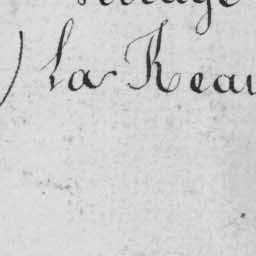 village
) La Reau